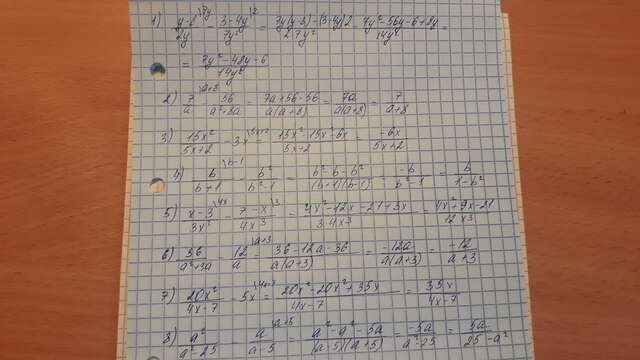 1) y-8/2y \7y - 3-4y/7y² \2 = 7y(y-8)-(3-4y)2/2·7y² = 7y²-56y-6+8y/14y² =
= 7y²-48y-6/14y²
2) 7/a \a+8 - 56/a²+8a = 7a+56-56/a(a+8) = 7a/a(a+8) = 7/a+8
3) 15x²/5x+2 - 3x \5x+2 = 15x²-15x²-6x/5x+2 = -6x/5x+2
4) b/b+1 \b-1 - b²/b²-1 = b²-b-b²/(b+1)(b-1) = -b/b²-1 = b/1-b²
5) x-3/3x² \4x - 7-x/4x³ \3 = 4x²-12x-21+3x/3·4x³ = 4x²+9x-21/12x³
6) 36/a²+3a - 12/a \a+3 = 36-12a-36/a(a+3) = -12a/a(a+3) = -12/a+3
7) 20x²/4x-7 - 5x \4x-7 = 20x²-20x²+35x/4x-7 = 35x/4x-7
8) a²/a²-25 - a/a-5 \a+5 = a²-a²-5a/(a-5)(a+5) = -5a/a²-25 = 5a/25-a²